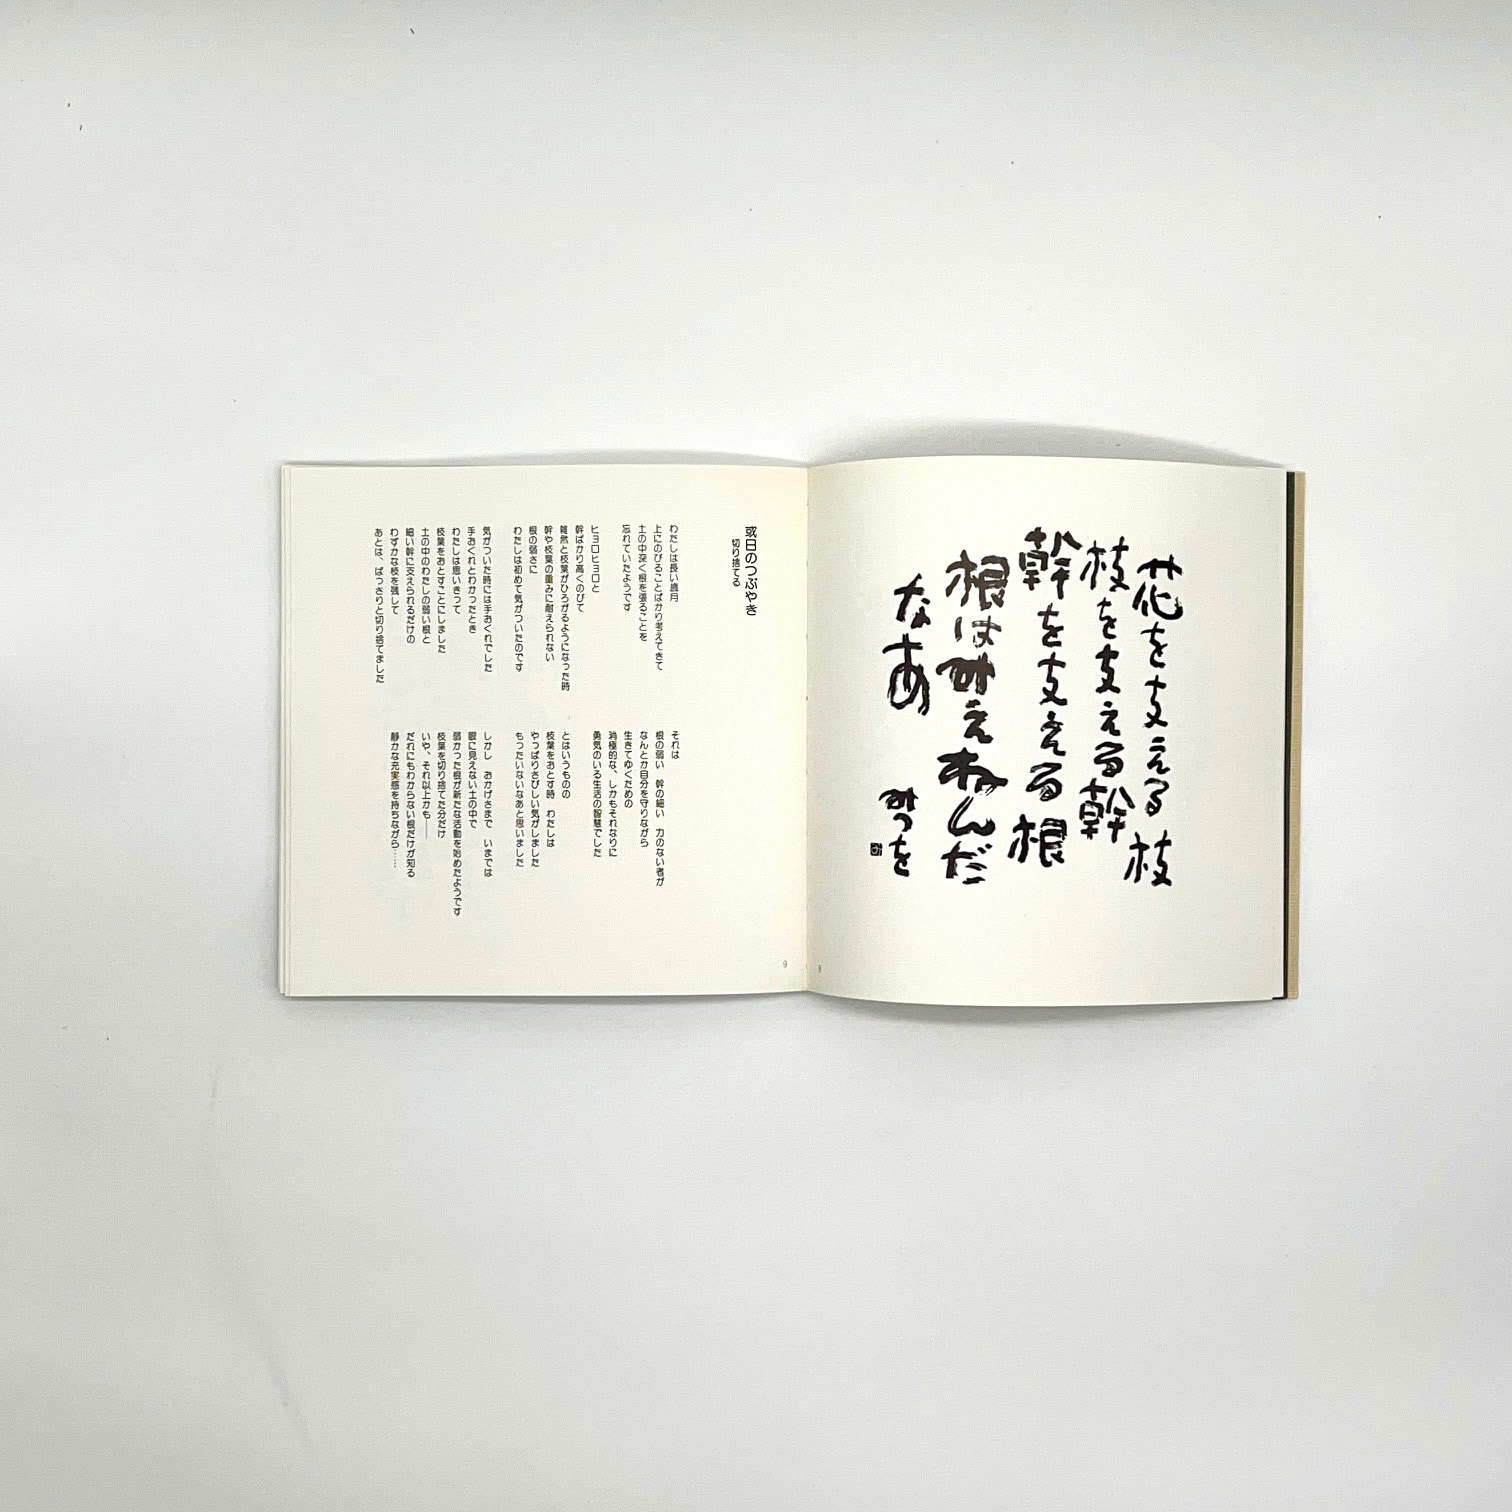 花を支える枝
枝を支える幹
幹を支える根
根はみえねんだ
なあ
みつを
8
或日のつぶやき
切り捨てる
わたしは長い歳月
上にのびることばかり考えてきて
土の中深く根を張ることを
忘れていたようです
ヒョロヒョロと
幹ばかり高くのびて
雑然と枝葉がひろがるようになった時
幹や枝葉の重みに耐えられない
根の弱さに
わたしは初めて気がついたのです
気がついた時には手おくれでした
手おくれとわかったとき
わたしは思いきって
枝葉をおとすことにしました
土の中のわたしの弱い根と
細い幹に支えられるだけの
わずかな枝を残して
あとは、ばっさりと切り捨てました
それは
根の弱い 幹の細い 力のない者が
なんとか自分を守りながら
生きてゆくための
消極的な、しかもそれなりに
勇気のいる生活の智慧でした
とはいうものの
枝葉をおとす時 わたしは
やっぱりさびしい気がしました
もったいないなあと思いました
しかし おかげさまで いまでは
眼に見えない土の中で
弱かった根が新たな活動を始めたようです
枝葉を切り捨てた分だけ
いや、それ以上かも――
だれにもわからない根だけが知る
静かな充実感を持ちながら……
9